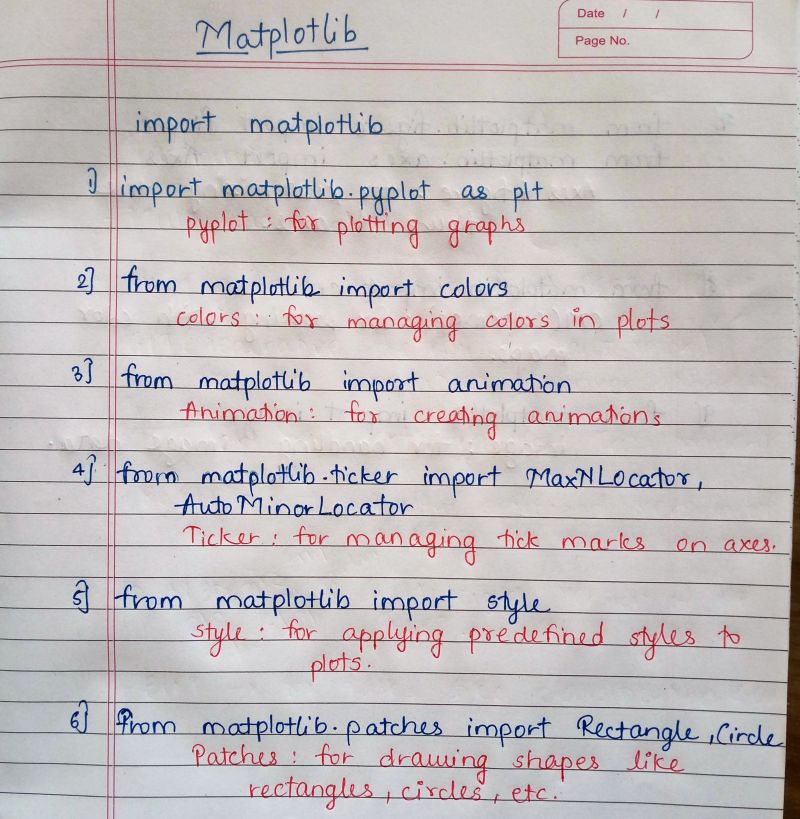 Matplotlib
Date / /
Page No.
import matplotlib
1) import matplotlib.pyplot as plt
pyplot : for plotting graphs
2] from matplotlib import colors
colors : for managing colors in plots
3] from matplotlib import animation
Animation : for creating animations
4] from matplotlib.ticker import MaxNLocator,
AutoMinorLocator
Ticker : for managing tick marks on axes.
5] from matplotlib import style
style : for applying predefined styles to
plots.
6] From matplotlib.patches import Rectangle, Circle
Patches : for drawing shapes like
rectangles, circles, etc.